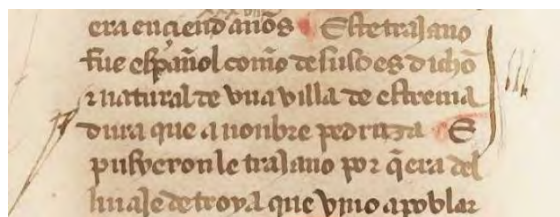 era en çiend años Este trajano
fue español commo de suso es dicho
z natural de vna villa de estrema
dura que a nonbre pedraza E
pusyeron le trajano por q̃ era del
linaje de troya que vyno a poblar